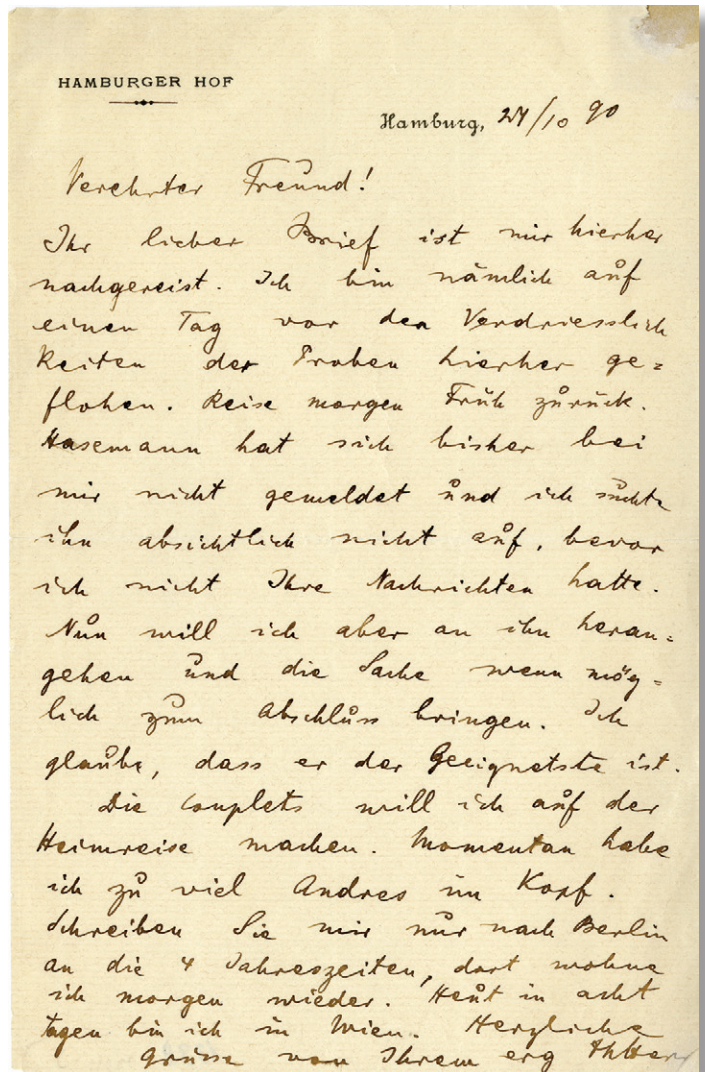 HAMBURGER HOF
Hamburg, 24/10 90
Verehrter Freund!
Ihr lieber Brief ist mir hierher
nachgereist. Ich bin nämlich auf
einen Tag vor den Verdriesslich
keiten der Proben hierher ge=
flohen. Reise morgen Früh zurück.
Hasemann hat sich bisher bei
mir nicht gemeldet und ich suchte
ihn absichtlich nicht auf, bevor
ich nicht Ihre Nachrichten hatte.
Nun will ich aber an ihn heran=
gehen und die Sache wenn mög=
lich zum Abschluss bringen. Ich
glaube, dass er der Geeignetste ist.
Die Couplets will ich auf der
Heimreise machen. Momentan habe
ich zu viel Andres im Kopf.
Schreiben Sie mir nur nach Berlin
an die 4 Jahreszeiten, dort wohne
ich morgen wieder. Heut in acht
Tagen bin ich in Wien. Herzliche
Grüsse von Ihrem erg